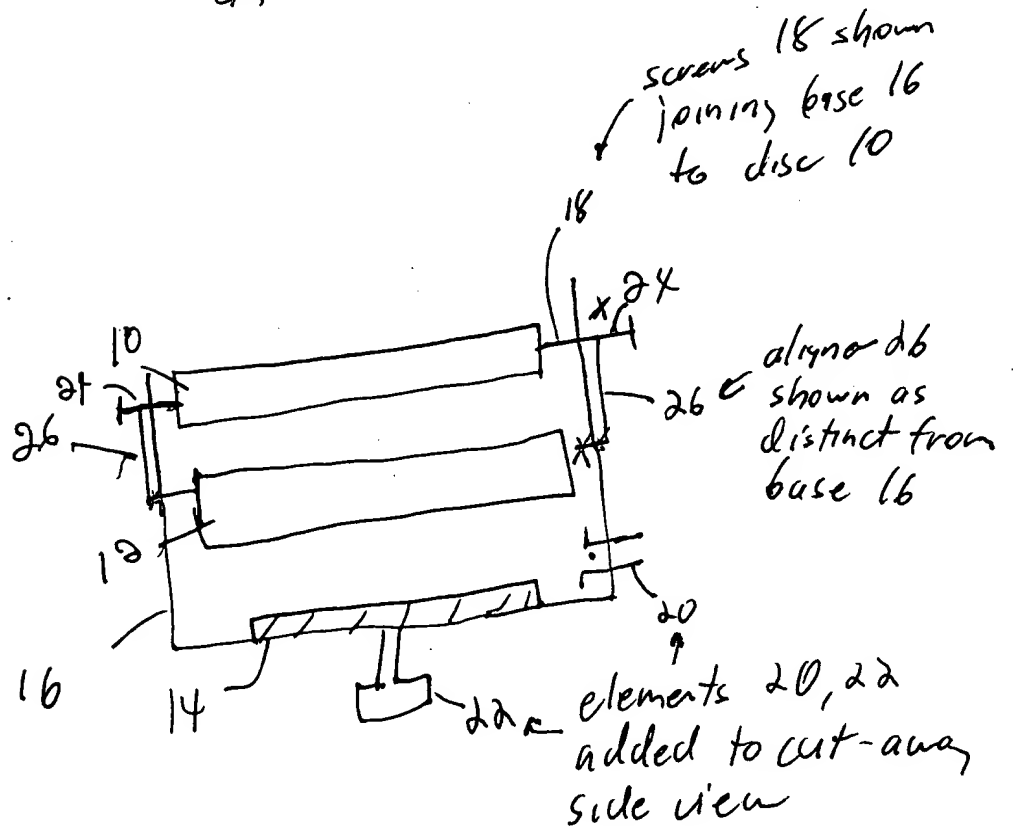 screws 18 shown
joining base 16
to disc 10
18
24
10
24
26
26
aligner 26
shown as
distinct from
base 16
12
20
16
14
22
elements 20, 22
added to cut-away
side view